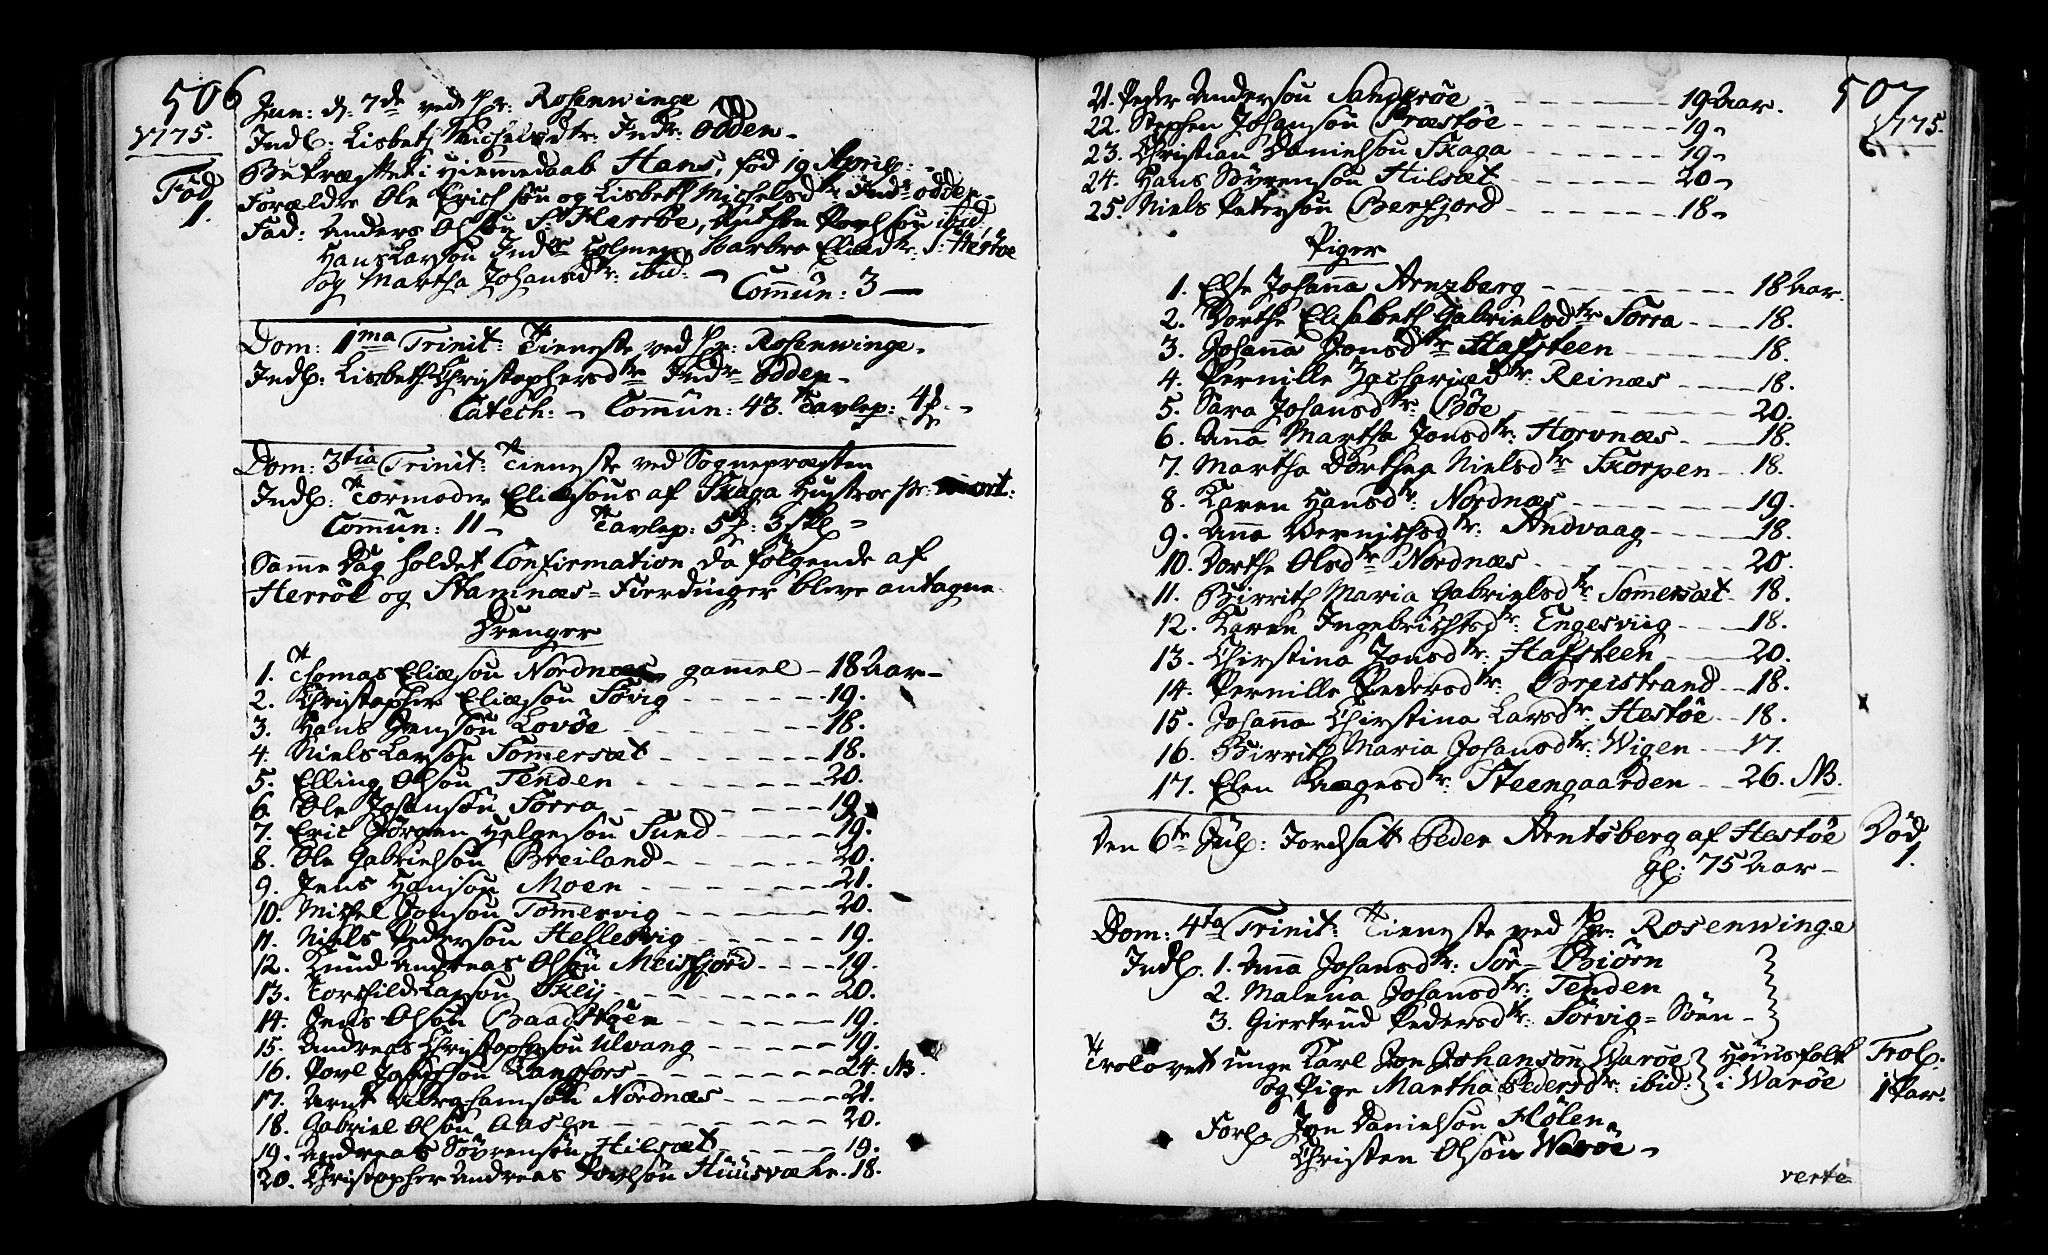 506
1775.
Fød
1.
Jun: d. 7de ved Hr: Rosenwinge
Indl: Lisbeth Michelsdtr: Indr: Odden -
Bekræftet i Hiemmedaab Hans, fød 19 April: -
Forældre Ole Erichsøn og Lisbeth Michelsdtr Indr Odden
Fad: Anders Olsøn S: Herrøe, Povelsøn ibid,
Hans Larsøn Indr Holmen, Barbro Eliædtr: S: Hestøe
og Martha Johansdtr: ibid: -
Comun: 3 -
Dom: 1ma Trinit: Tieneste ved Hr: Rosenwinge.
Indl: Lisbeth Christophersdtr Indr Odden -
Catech: - Comun: 43. Tavlep: 4 -
Dom: 3tia Trinit: Tieneste ved Sognepræsten
Indl: Tormoder Eliæsøns af Skaga Hustroe
Comun: 11 - Tavlep: 5 3 sk -
Samme Dag holdet Confirmation da følgende af
Herrøe og Stamnæs = Fierdinger bleve antagne
Drenger
1. Thomas Eliæsøn Nordnæs gamel - 18 Aar -
2. Christopher Eliæsøn Søvig - 19.
3. Hans Jensøn Lovøe - 18.
4. Niels Larsøn Sommersæt - 18.
5. Elling Olsøn Tenden - 20.
6. Ole Johansøn Sørra - 19.
7. Eric Jørgen Helgesøn Sund - 19.
8. Ole Gabrielsøn Breiland - 20.
9. Jens Hansøn Moen - 21.
10. Michel Jonsøn Tommervig - 20.
11. Niels Pedersøn Hellesvig - 19.
12. Knud Andreas Olsøn Meisfjord - 19.
13. Torchild Larsøn Skeij - 20.
14. Jens Olsøn Baadsøen - 19.
15. Andreas Christophersøn Ulvang - 19.
16. Povl Jacobsøn Langfors - 24. NB.
17. Arnt Abrahamsøn Nordnæs - 21.
18. Gabriel Olsøn Aasen - 20.
19. Andreas Sövrensøn Hilsæt - 19.
20. Christopher Andreas Povelsøn Huusvæhr. 18.
507
1775.
21. Peder Andersøn Sanderøe - 19 Aar.
22. Stephen Johansøn Præstøe - 19 -
23. Christian Danielsøn Skaga - 19 -
24. Hans Sövrensøn Hilsæt - 20 -
25. Niels Petersøn Benfjord - 18 -
Piger
1. Else Johanna Arnzberg - 18 Aar.
2. Dorthe Elisabeth Gabrielsdtr Sørra - 18.
3. Johanna Jonsdtr Hafsteen - 18.
4. Pernille Zachariædtr: Reinæs - 18.
5. Sara Johansdtr: Bøe - 20.
6. Anna Martha Jonsdtr: Horvnæs - 18.
7. Martha Dorthea Nielsdtr Skorpen - 18.
8. Karen Hansdtr: Nordnæs - 19.
9. Anna Bernthsdtr: Andvaag - 18.
10. Dorthe Olsdtr Nordnæs - 20.
11. Birrith Maria Gabrielsdtr Sommersæt - 18.
12. Karen Ingebrichtsdtr: Engesviig - 18.
13. Chirstina Jonsdtr: Hafsteen - 20.
14. Pernille Pedersdtr: Breistrand - 18.
15. Johanna Chirstina Larsdtr: Hestøe - 18.
16. Birrith Maria Johansdtr: Wigen - 17.
17. Elen Aagesdtr: Steengaarden - 26. NB.
Den 6te Jul: Jordsatt Peder Arntsberg af Hestøe
gl: 75 Aar -
Død
1.
Dom: 4ta Trinit: Tieneste ved Hr: Rosenwinge
Indl. 1. Anna Johansdtr: Sør - Biørn
2. Malena Johansdtr: Tenden
3. Giertrud Pedersdtr: Sørvig = Søen -
Trolovet unge Karl Jon Johansøn Warøe Huusfolk
og Pige Martha Pedersdtr: ibid: i Warøe
Trol.
1 Par.
Forl. Jon Danielsøn Hølen
Christen Olsøn Warøe -
verte